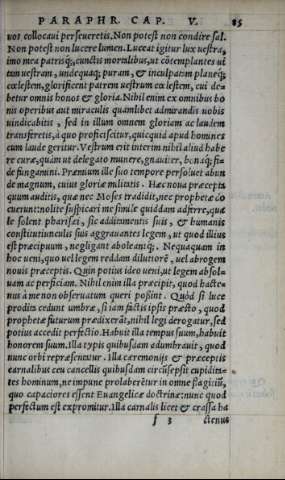 PARAPHR. CAP. V. 85
uos collocaui perseueretis. Non potest non condire sal.
Non potest non lucere lumen. Luceat igitur lux uestra,
imo mea patrisq́;, cunctis mortalibus, ut cōtemplantes ui
tam uestram, undequaq; puram, & inculpatam planeq́;
cœlestem, glorificent patrem uestrum cœlestem, cui de=
betur omnis honos & gloria. Nihil enim ex omnibus bo
nis operibus aut miraculis quamlibet admirandis uobis
uindicabitis, sed in illum omnem gloriam ac laudem
transferetis, à quo proficiscitur, quicquid apud homines
cum laude geritur. Vestrum erit interim nihil aliud habe
re curæ, quàm ut delegato munere, gnauiter, bonaq́; fi=
de fungamini. Præmium ille suo tempore persoluet abun
de magnum, cuius gloriæ militatis. Hæc noua præcepta
quum auditis, quæ nec Moses tradidit, nec prophetæ do
cuerunt: nolite suspicari me simile quiddam adferre, quale
solent pharisæi, sic additamentis suis, & humanis
constitutiunculis suis aggrauantes legem, ut quod illius
est præcipuum, negligant aboleantq́;. Nequaquam in
hoc ueni, quo uel legem reddam dilutiorē, uel abrogem
nouis præceptis. Quin potius ideo ueni, ut legem absol=
uam ac perficiam. Nihil enim illa præcipit, quod hacte=
nus à me non obseruatum queri possint. Quòd si luce
prodita cedunt umbræ, si iam factis ipsis præsto, quod
prophetæ futurum prædixerāt, nihil legi derogatur, sed
potius accedit perfectio. Habuit illa tempus suum, habuit
honorem suum. Illa typis quibusdam adumbrauit, quod
nunc orbi repræsentatur. Illa cæremonijs & præceptis
carnalibus ceu cancellis quibusdam circūsepsit cupidita=
tes hominum, ne impune prolaberētur in omne flagitiū,
quo capaciores essent Euangelicæ doctrinæ: nunc quod
perfectum est expromitur. Illa carnalis licet & crassa ha
f 3 ctenus